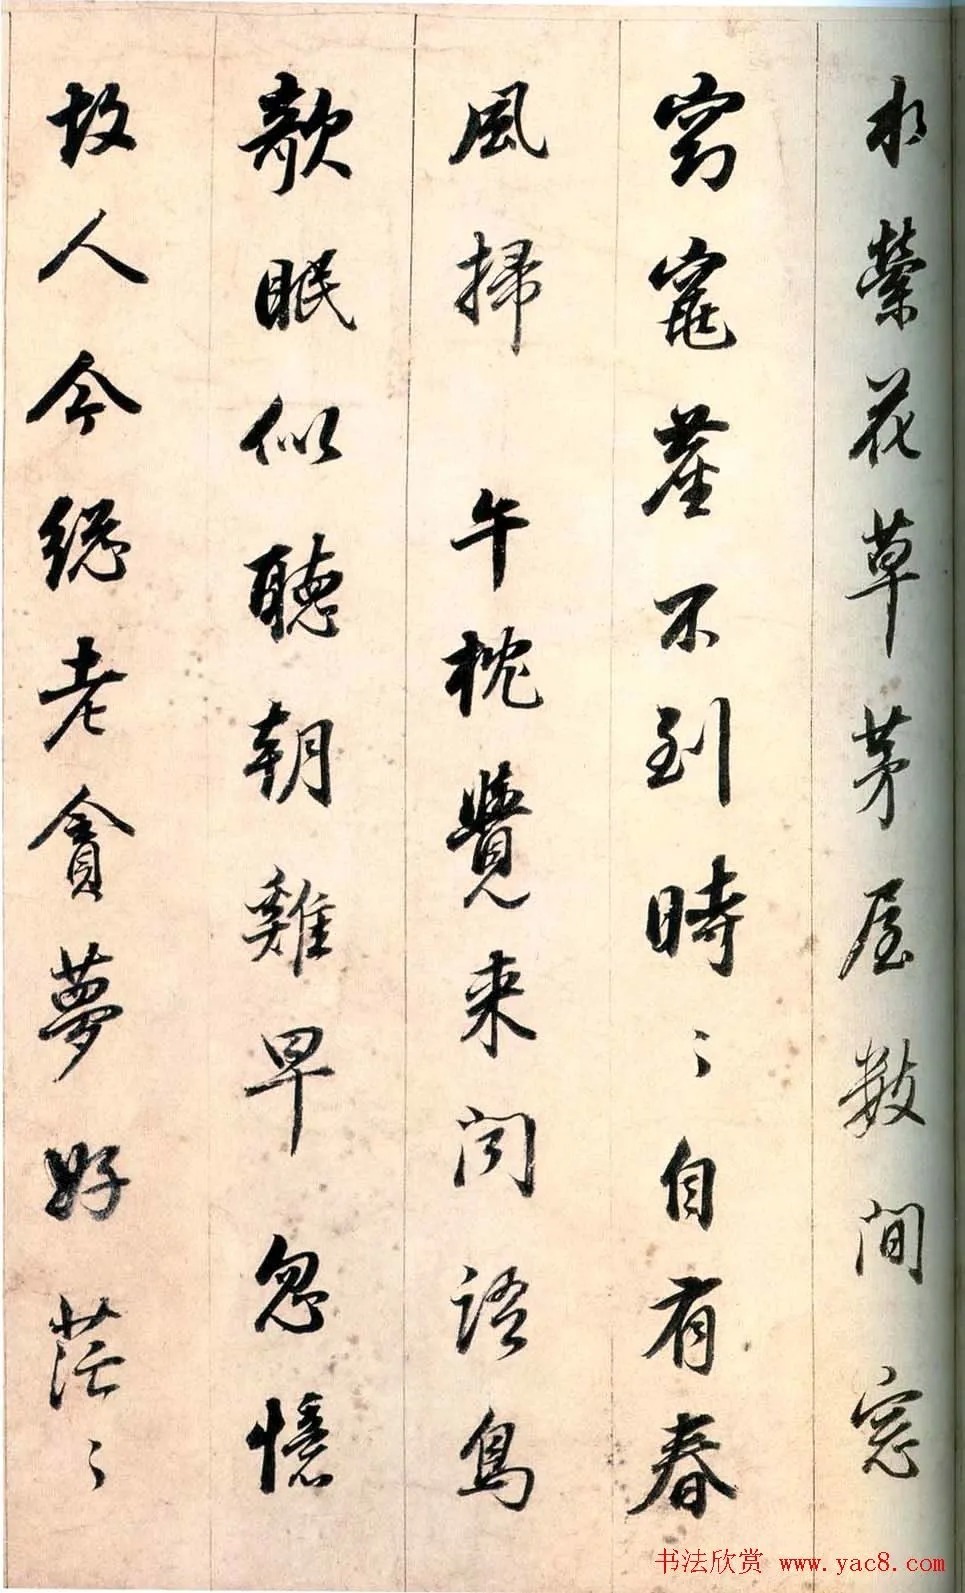 水縈花草茅屋数间窓
窈窕塵不到時〻自有春
風掃 午枕覺来闻語鳥
欹眠似聽朝雞早忽憶
故人今總老貪夢好茫〻
书法欣赏 www.yac8.com